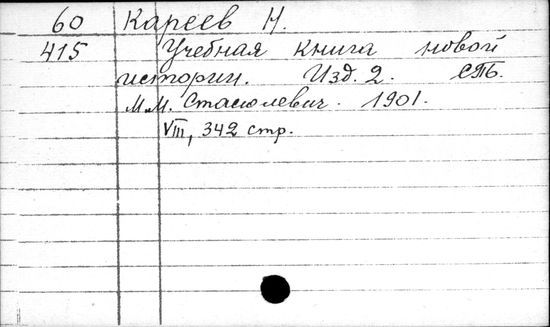 60 Кареев Н.
415 Учебная книга новой
истории. Изд. 2. СПб.
М.М. Стасюлевич. 1901.
VIII, 342 стр.